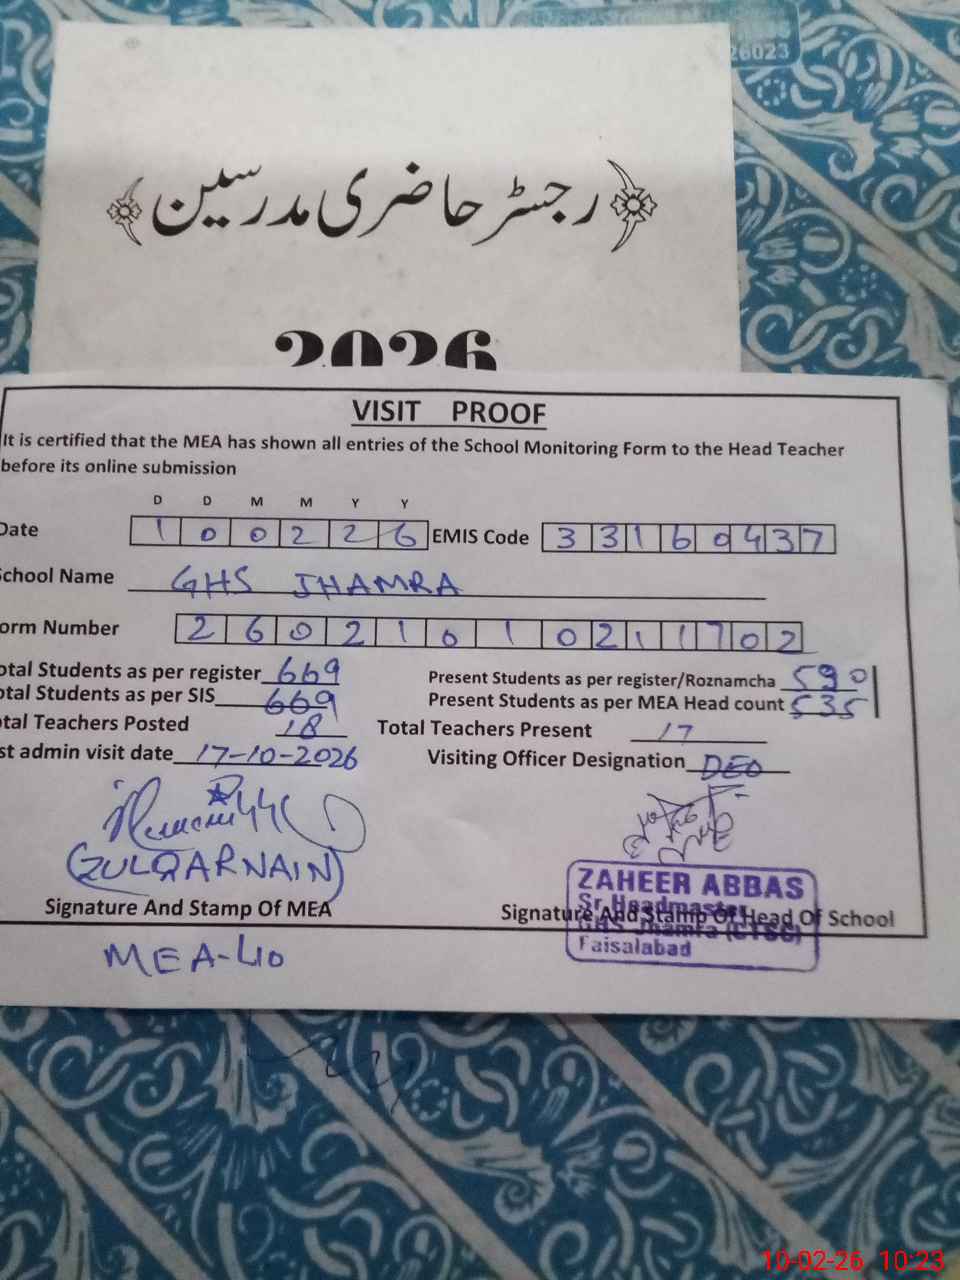 26023
رجسٹر حاضری مدرسین
2026
VISIT PROOF
It is certified that the MEA has shown all entries of the School Monitoring Form to the Head Teacher
before its online submission
D D M M Y Y
Date 1 0 0 2 2 6 EMIS Code 3 3 1 6 0 4 3 7
School Name GHS JHAMRA
orm Number 2 6 0 2 1 0 1 0 2 1 1 7 0 2
otal Students as per register 669 Present Students as per register/Roznamcha 590
otal Students as per SIS 669 Present Students as per MEA Head count 535
otal Teachers Posted 18 Total Teachers Present 17
st admin visit date 17-10-2026 Visiting Officer Designation DEO
(ZULQARNAIN)
ZAHEER ABBAS
Sr. Headmaster
GHS Jhamra (GTSC)
Faisalabad
Signature And Stamp Of MEA Signature And Stamp Of Head Of School
MEA-40
10-02-26 10:23